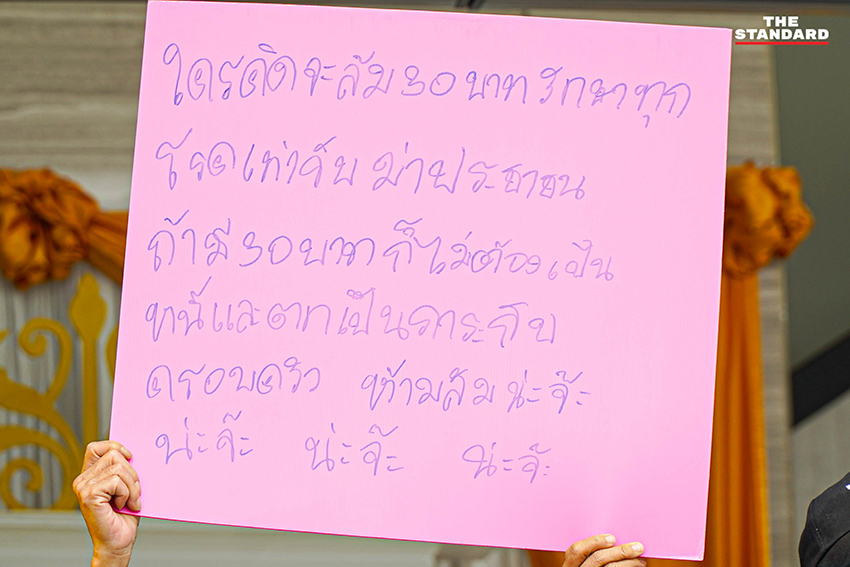 THE
STANDARD
ใครคิดจะล้ม 30 บาท รักษาทุก
โรคเท่ากับ ฆ่าประชาชน
ถ้ามี 30 บาท ก็ไม่ต้องเป็น
หนี้และตกเป็นภาระกับ
ครอบครัว ห้ามล้ม น่ะจ๊ะ
น่ะจ๊ะ น่ะจ๊ะ น่ะจ๊ะ